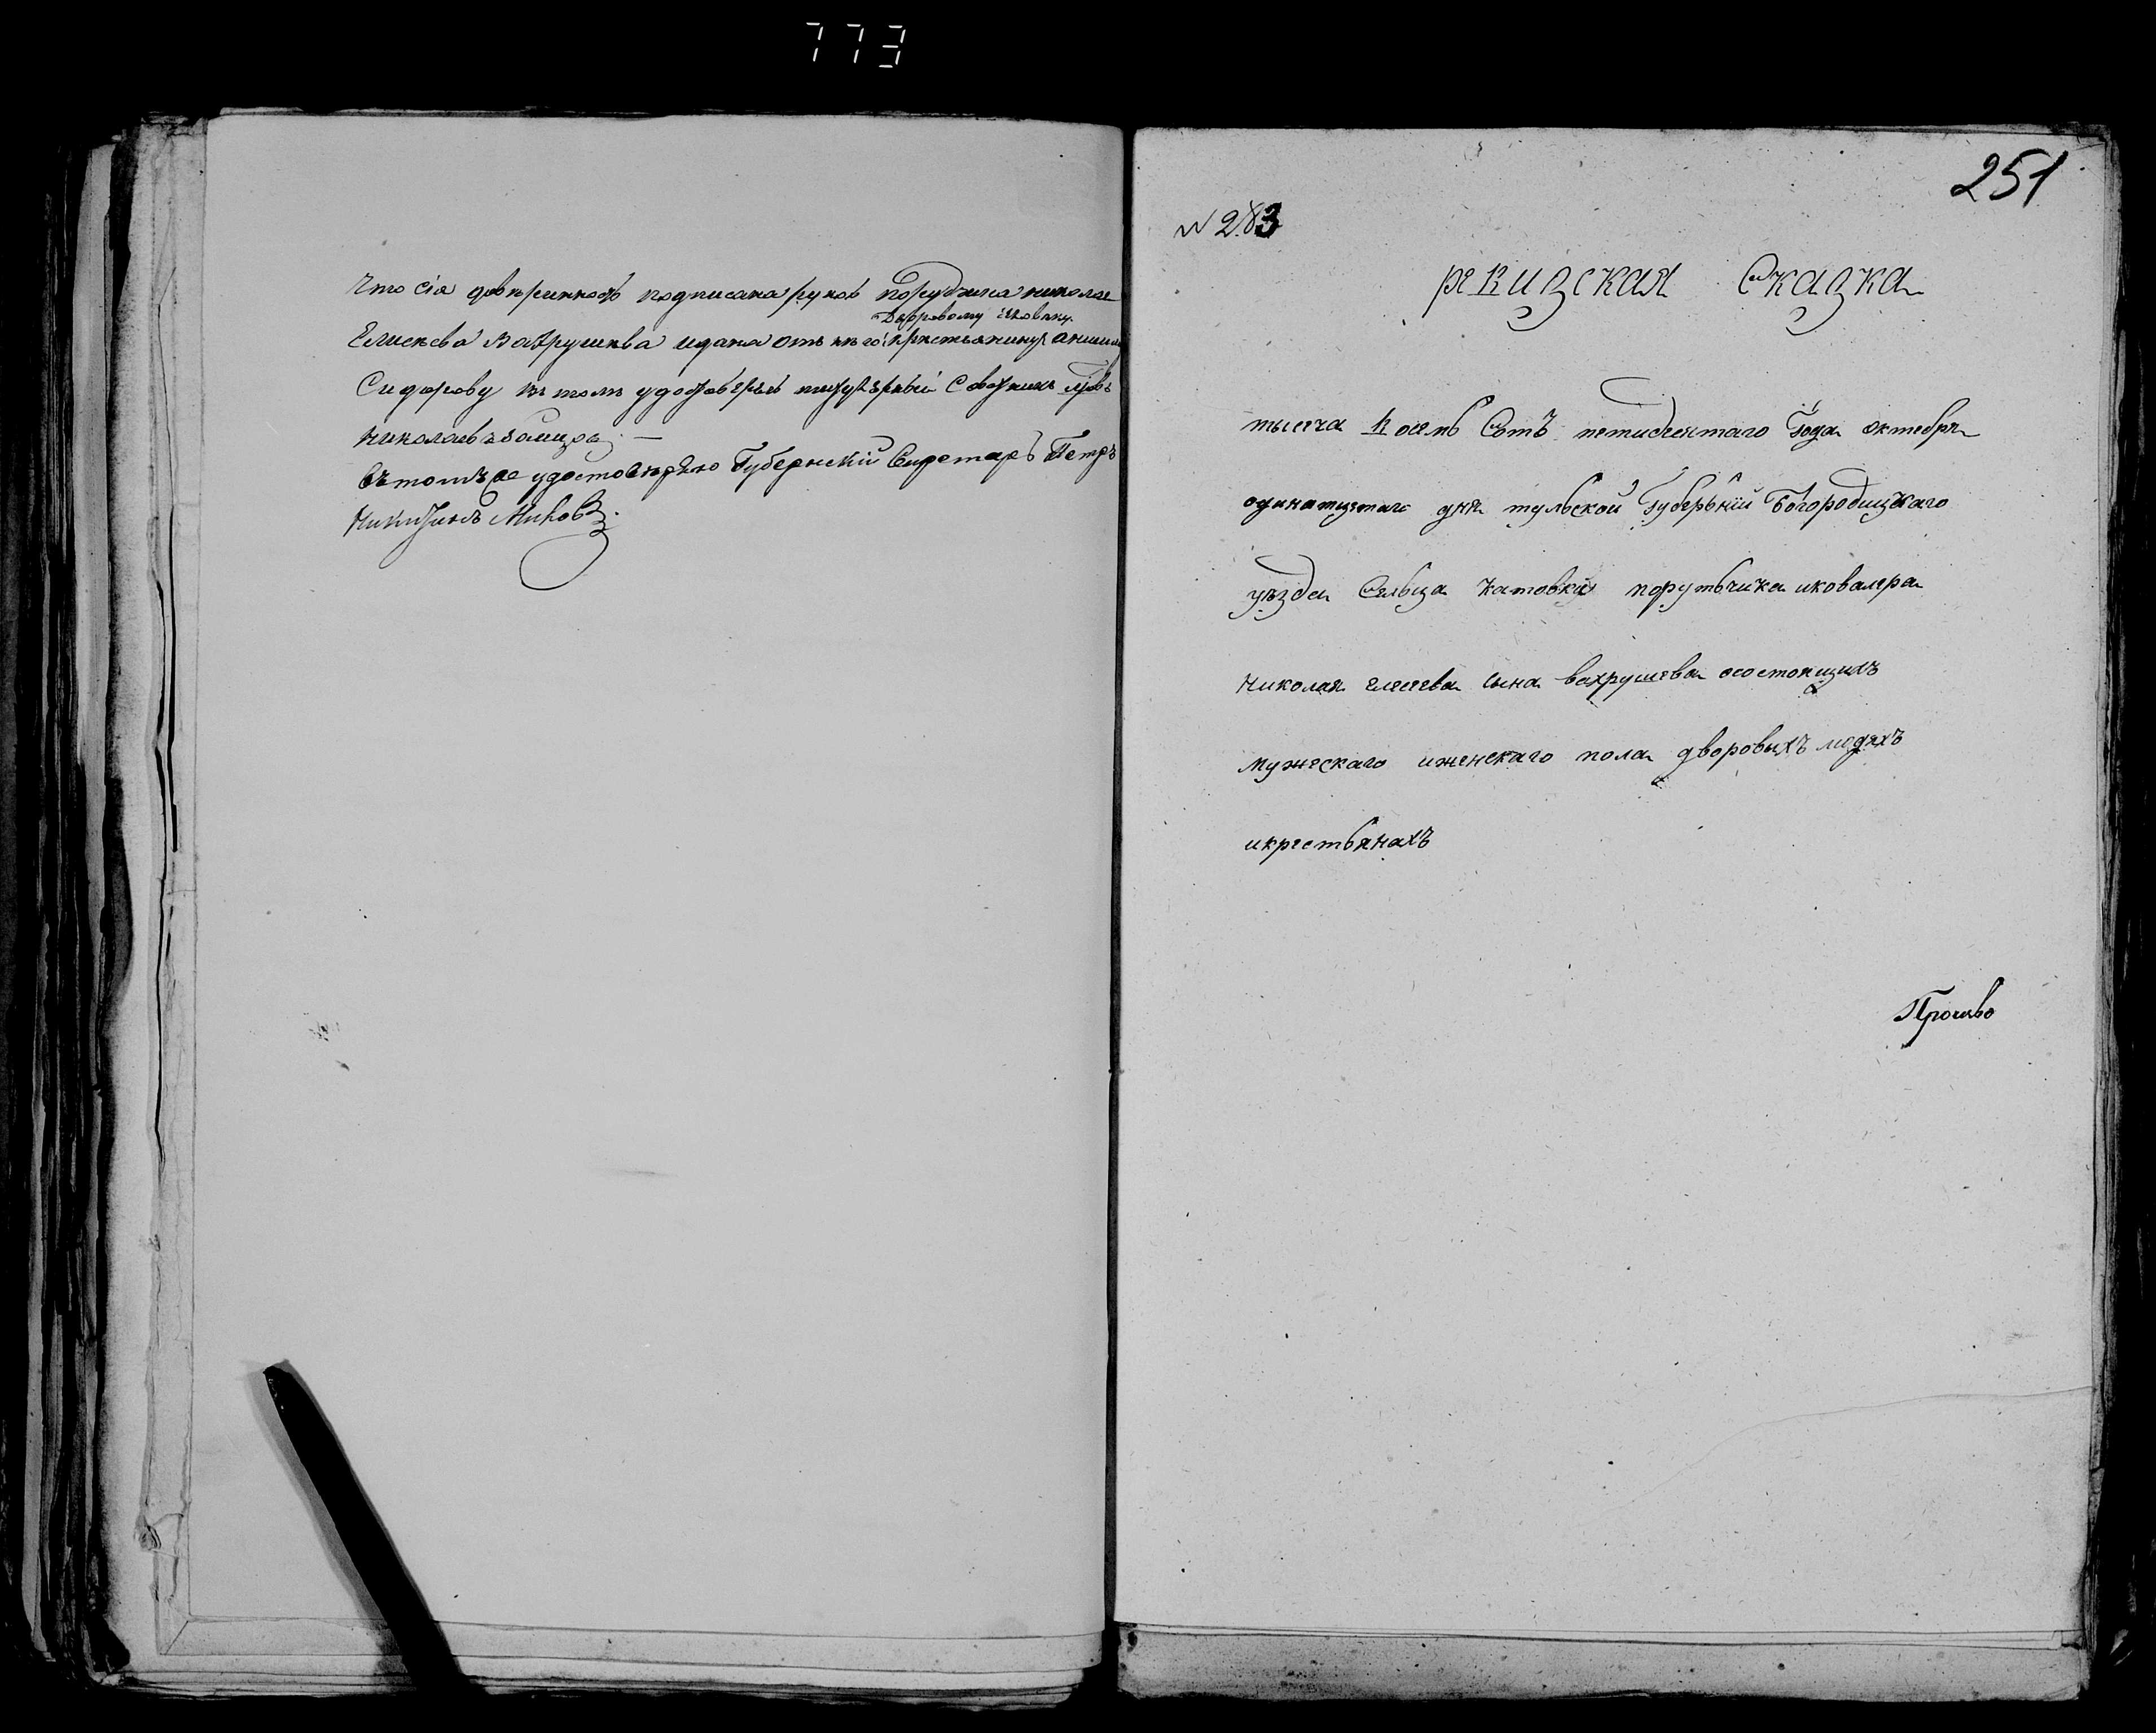 773
Что сія довѣринность подписана рукою Порутчика николая
Дворовому человеку
Елисѣева Вахрушева идана отъ него крестьянину
Сидорову въ томъ удостоверяю титулярный Советникъ
Николаевъ
Въ томъ же удостовѣряю Губернскій Секретарь Петръ
251
№ 283
ревизская Сказка
тысеча восемь Сотъ петидесятаго Года октебря
одинатцатаго дня тульской Губерьнїй Богородицкаго
уѣзда Сельца Катовки порутьчика иковалера
Николая елесеева сына вахрушева осостоящихъ
мужескаго иженскаго пола дворовыхъ людяхъ
икрестьянахъ